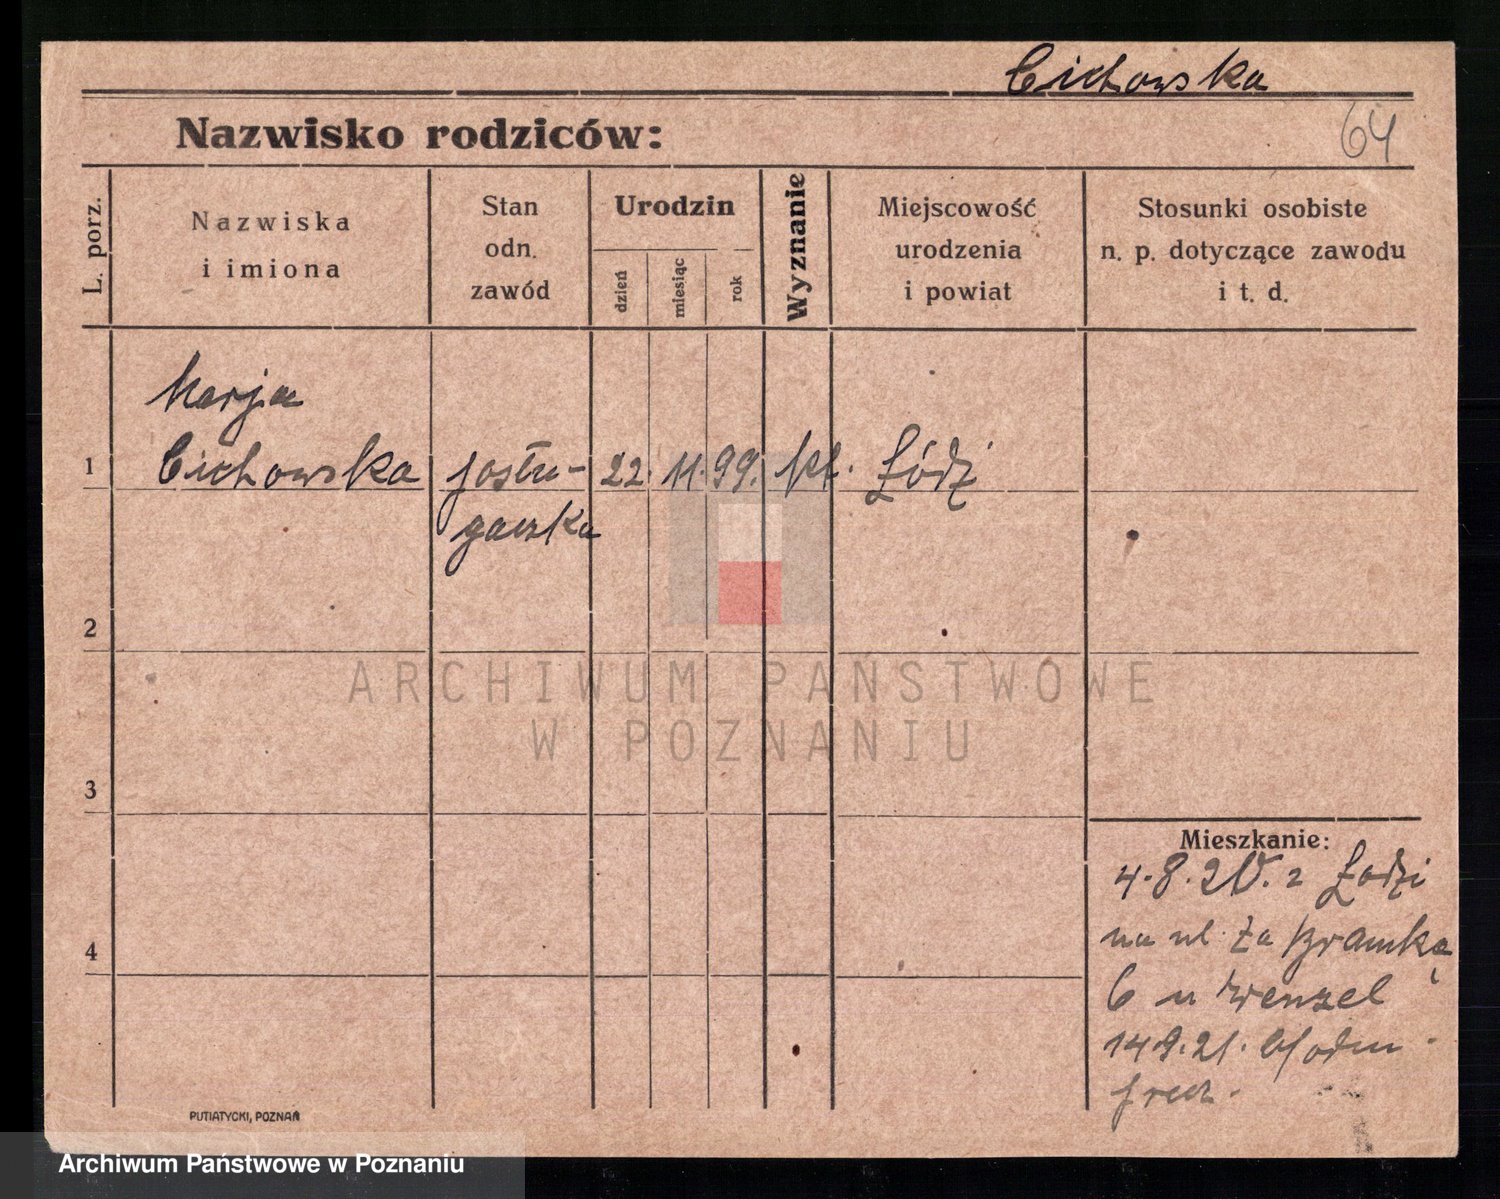 Cichowska
Nazwisko rodziców:
64
L. porz.
Nazwiska
i imiona
Stan
odn.
zawód
Urodzin
dzień
miesiąc
rok
Wyznanie
Miejscowość
urodzenia
i powiat
Stosunki osobiste
n. p. dotyczące zawodu
i t. d.
Marja
1 Cichowska posłu- 22. 11. 99. kt. Łódź
gaczka
2
ARCHIWUM PAŃSTWOWE
W POZNANIU
3
Mieszkanie:
4.8.20. z Łodzi
na ul. Za Bramką
4
6 u Wenzel
14.9.21.
PUTIATYCKI, POZNAŃ
Archiwum Państwowe w Poznaniu